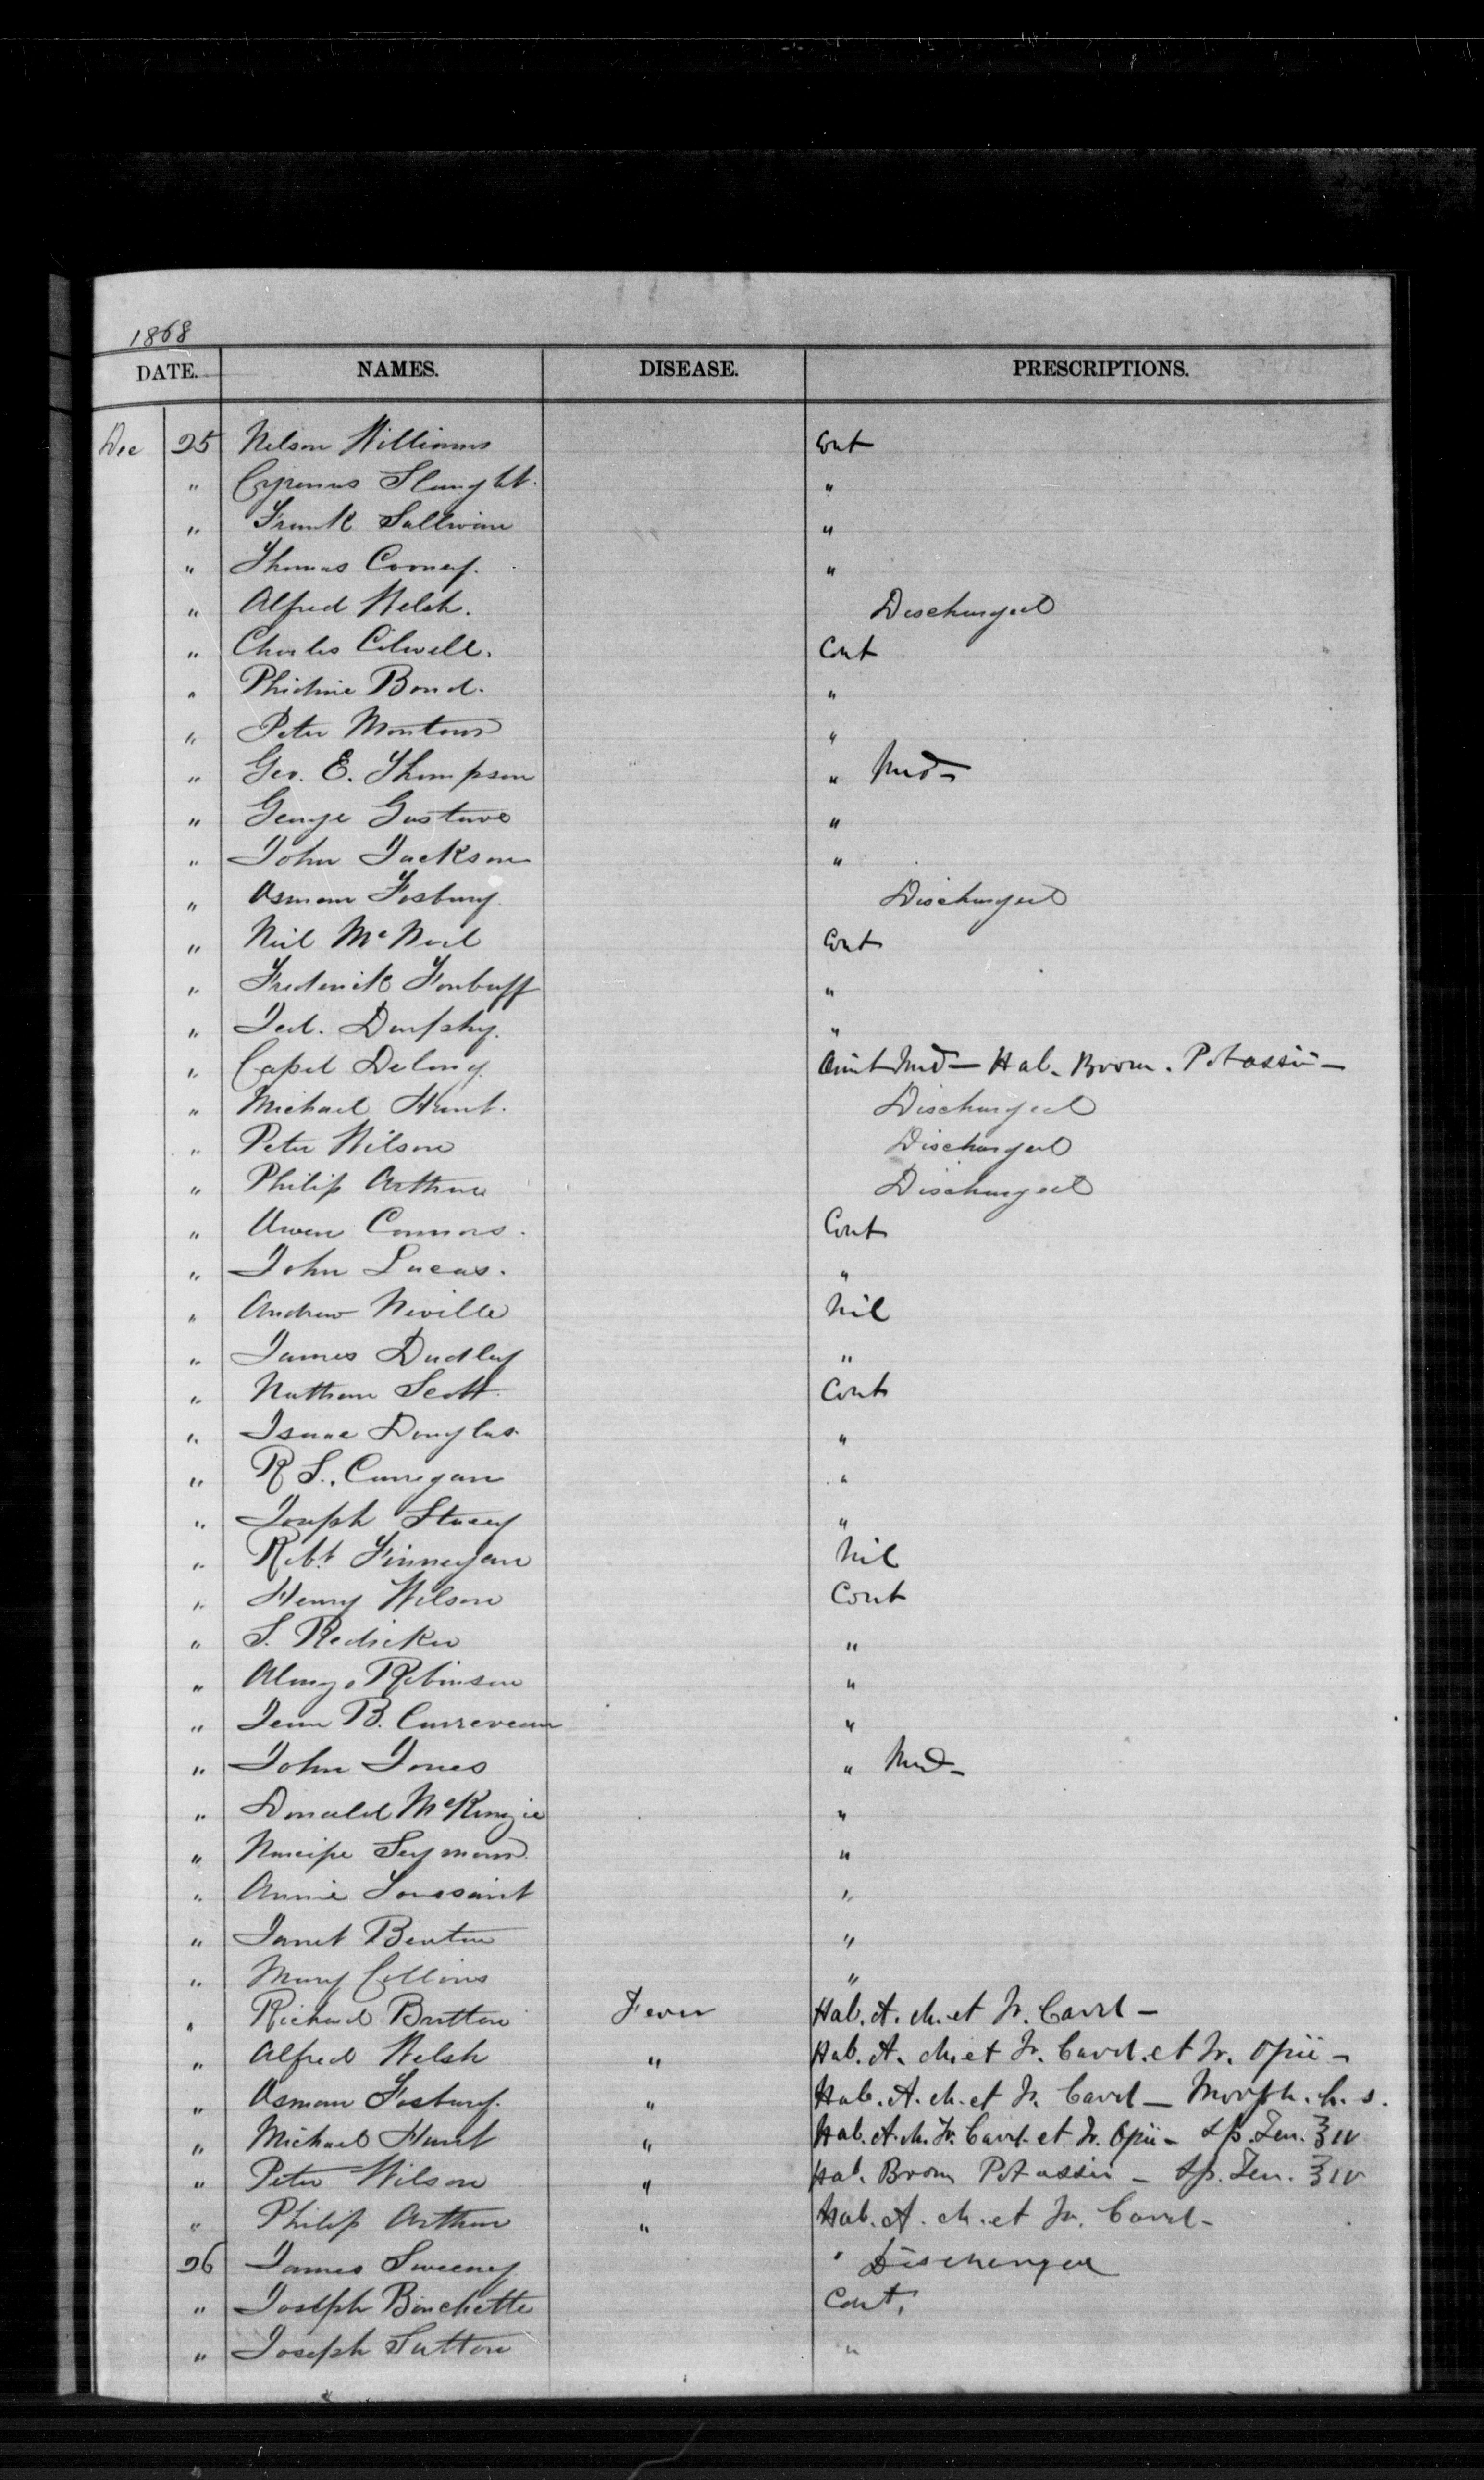 1868
DATE. NAMES. DISEASE. PRESCRIPTIONS.
Dec 25 Nelson Williams Cont
" Cyrenus Slaught. "
" Frank Sullivan "
" Thomas Cooney. "
" Alfred Welsh. Discharged
" Charles Colwell. Cont
" Phidime Bond. "
" Peter Montour "
" Geo. E. Thompson " Med -
" George Gustave "
" John Jackson "
" Osman Fosbury Discharged
" Neil McNeil Cont
" Frederick Fonbuff "
" Jed. Dunphy. "
" Capel Delong Omit Med — Hab. Brom. Potassii —
" Michael Hunt. Discharged
" Peter Wilson Discharged
" Philip Arthur Discharged
" Owen Connors. Cont
" John Lucas. "
" Andrew Neville Nil
" James Dudley "
" Nathan Scott Cont
" Isaac Douglas "
" R S. Carregan "
" Joseph Stacey "
" Robt Finnegan Nil
" Henry Wilson Cont
" S. Rediker "
" Alonzo Robinson "
" Jean B. "
" John Jones " Med -
" Donald McKenzie "
" Narcipe Seymour "
" Annie Toussaint "
" Janet Benton "
" Mary Collins "
" Richard Britton Fever Hab. A. M. et Tr. Card —
" Alfred Welsh " Hab. A. M. et Tr. Card. et Tr. Opii —
" Osman Fosbury. " Hab. A. M. et Tr. Card — Morph. h. s.
" Michael Hunt " Hab. A. M. Tr. Card. et Tr. Opii — Sp. Ten. ʒ iv
" Peter Wilson " Hab. Brom Potassii — Sp. Ten. ʒ iv
" Philip Arthur " Hab. A. M. et Tr. Card —
26 James Sweeney " Discharged
" Joseph Bouchette Cont,
" Joseph Sutton "